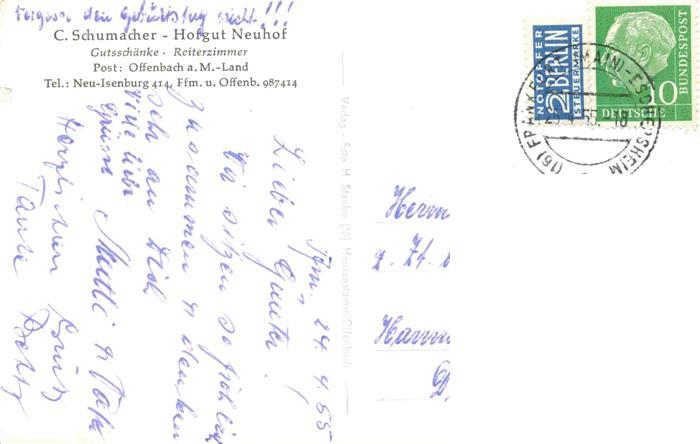 Vergess den Geburtstag nicht!!!
C. Schumacher - Hofgut Neuhof
Gutsschänke · Reiterzimmer
Post: Offenbach a. M.-Land
Tel.: Neu-Isenburg 414, Ffm. u. Offenb. 987414
Ffm, 24. 4. 55
Lieber Günter!
Wir sitzen so fröhlich
zusammen u denken
sehr an Dich
Viele liebe
Grüsse Mutti u Papa
Herzlichen Gruß
Tante
Verlag - Foto H. Steube (16) Heusenstamm-Offenbach
Herrn
z. Zt.
Hann
NOTOPFER
2 BERLIN
STEUERMARKE
DEUTSCHE
BUNDESPOST
10
(16) FRANKFURT (MAIN)-ESCHERSHEIM
55. 18